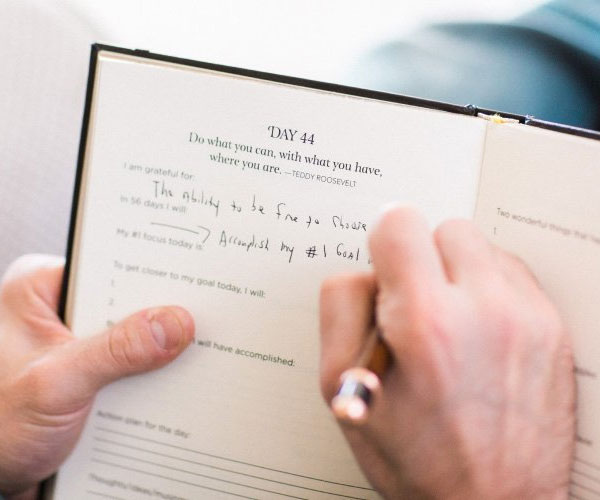 DAY 44
Do what you can, with what you have,
where you are. —TEDDY ROOSEVELT
I am grateful for:
The ability to be free to choose
In 56 days I will:
Accomplish my #1 Goal
My #1 focus today is:
To get closer to my goal today, I will:
1.
2.
will have accomplished:
Action plan for the day:
Thoughts/ideas/
Two wonderful things that
1.